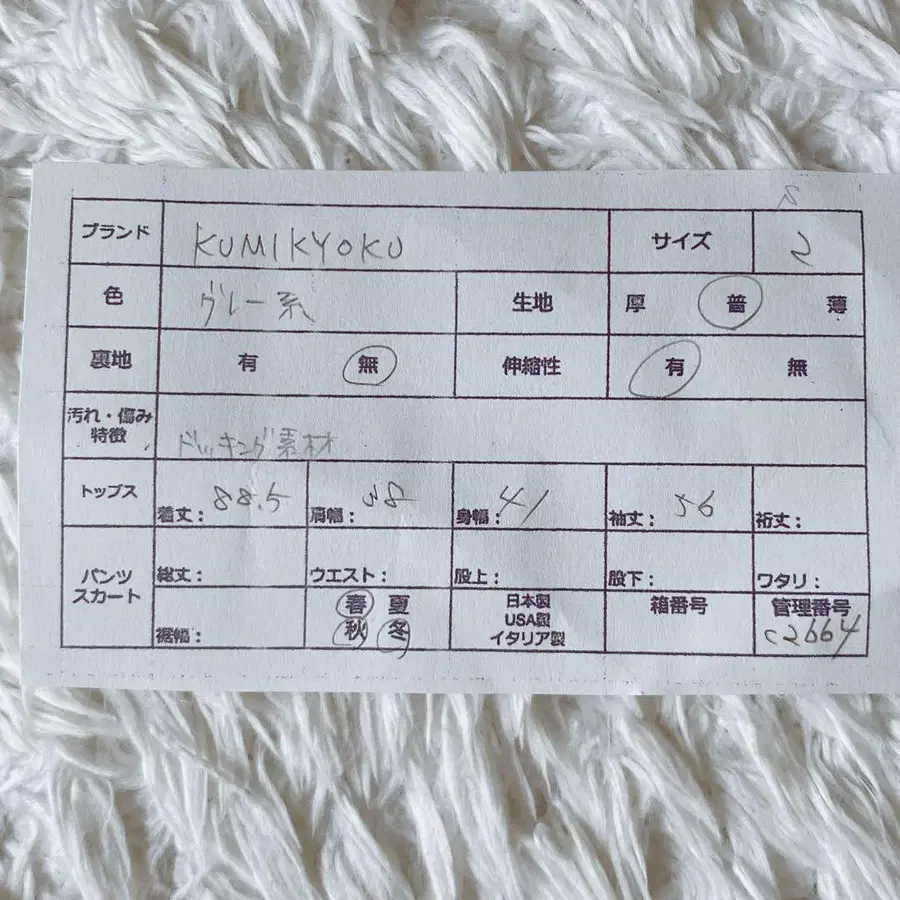 ブランド KUMIKYOKU サイズ 2
色 グレー系 生地 厚 普 薄
裏地 有 無 伸縮性 有 無
汚れ・傷み
特徴 ドッキング素材
トップス 着丈: 88.5 肩幅: 38 身幅: 41 袖丈: 56 裄丈:
パンツ
スカート 総丈: ウエスト: 股上: 股下: ワタリ:
裾幅: 春 夏
秋 冬 日本製
USA製
イタリア製 箱番号 管理番号
C2664